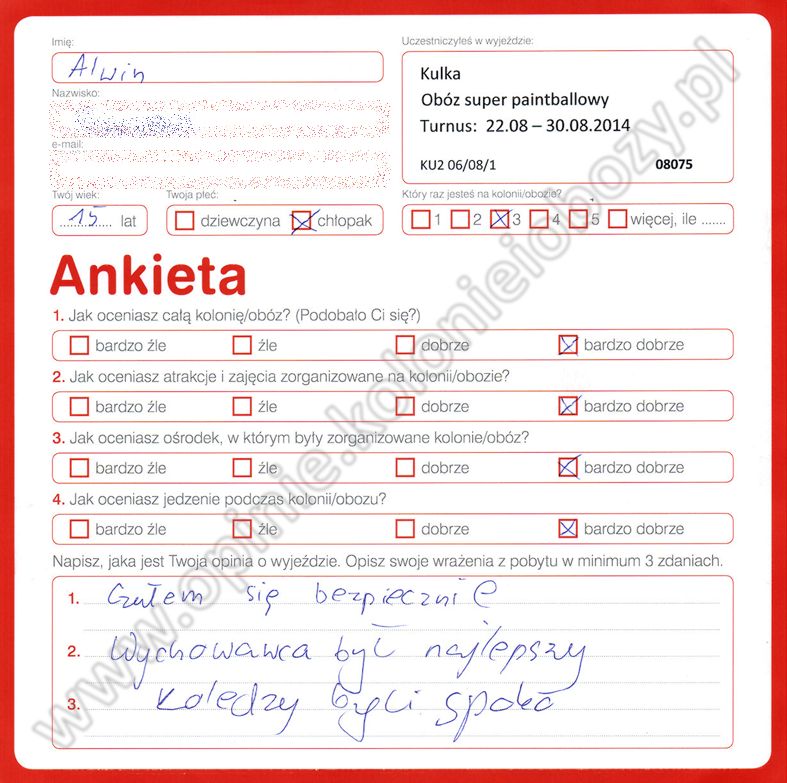 Imię:
Alwin
Nazwisko:
e-mail:
Twój wiek:
15 lat
Twoja płeć:
dziewczyna chłopak
Uczestniczyłeś w wyjeździe:
Kulka
Obóz super paintballowy
Turnus: 22.08 – 30.08.2014
KU2 06/08/1 08075
Który raz jesteś na kolonii/obozie?
1 2 3 4 5 więcej, ile .......
Ankieta
1. Jak oceniasz całą kolonię/obóz? (Podobało Ci się?)
bardzo źle źle dobrze bardzo dobrze
2. Jak oceniasz atrakcje i zajęcia zorganizowane na kolonii/obozie?
bardzo źle źle dobrze bardzo dobrze
3. Jak oceniasz ośrodek, w którym były zorganizowane kolonie/obóz?
bardzo źle źle dobrze bardzo dobrze
4. Jak oceniasz jedzenie podczas kolonii/obozu?
bardzo źle źle dobrze bardzo dobrze
Napisz, jaka jest Twoja opinia o wyjeździe. Opisz swoje wrażenia z pobytu w minimum 3 zdaniach.
1. Czułem się bezpiecznie
2. Wychowawca był najlepszy
3. Koledzy byli spoko
www.opinie.kolonieiobozy.pl